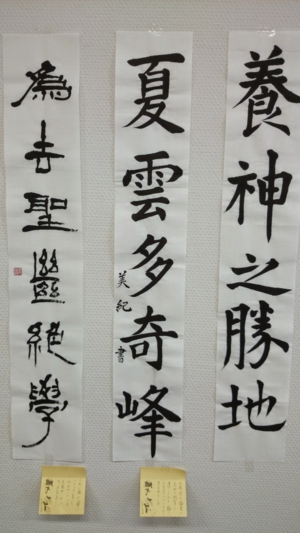 養神之勝地
夏雲多奇峰
美紀書
為去聖繼絶學